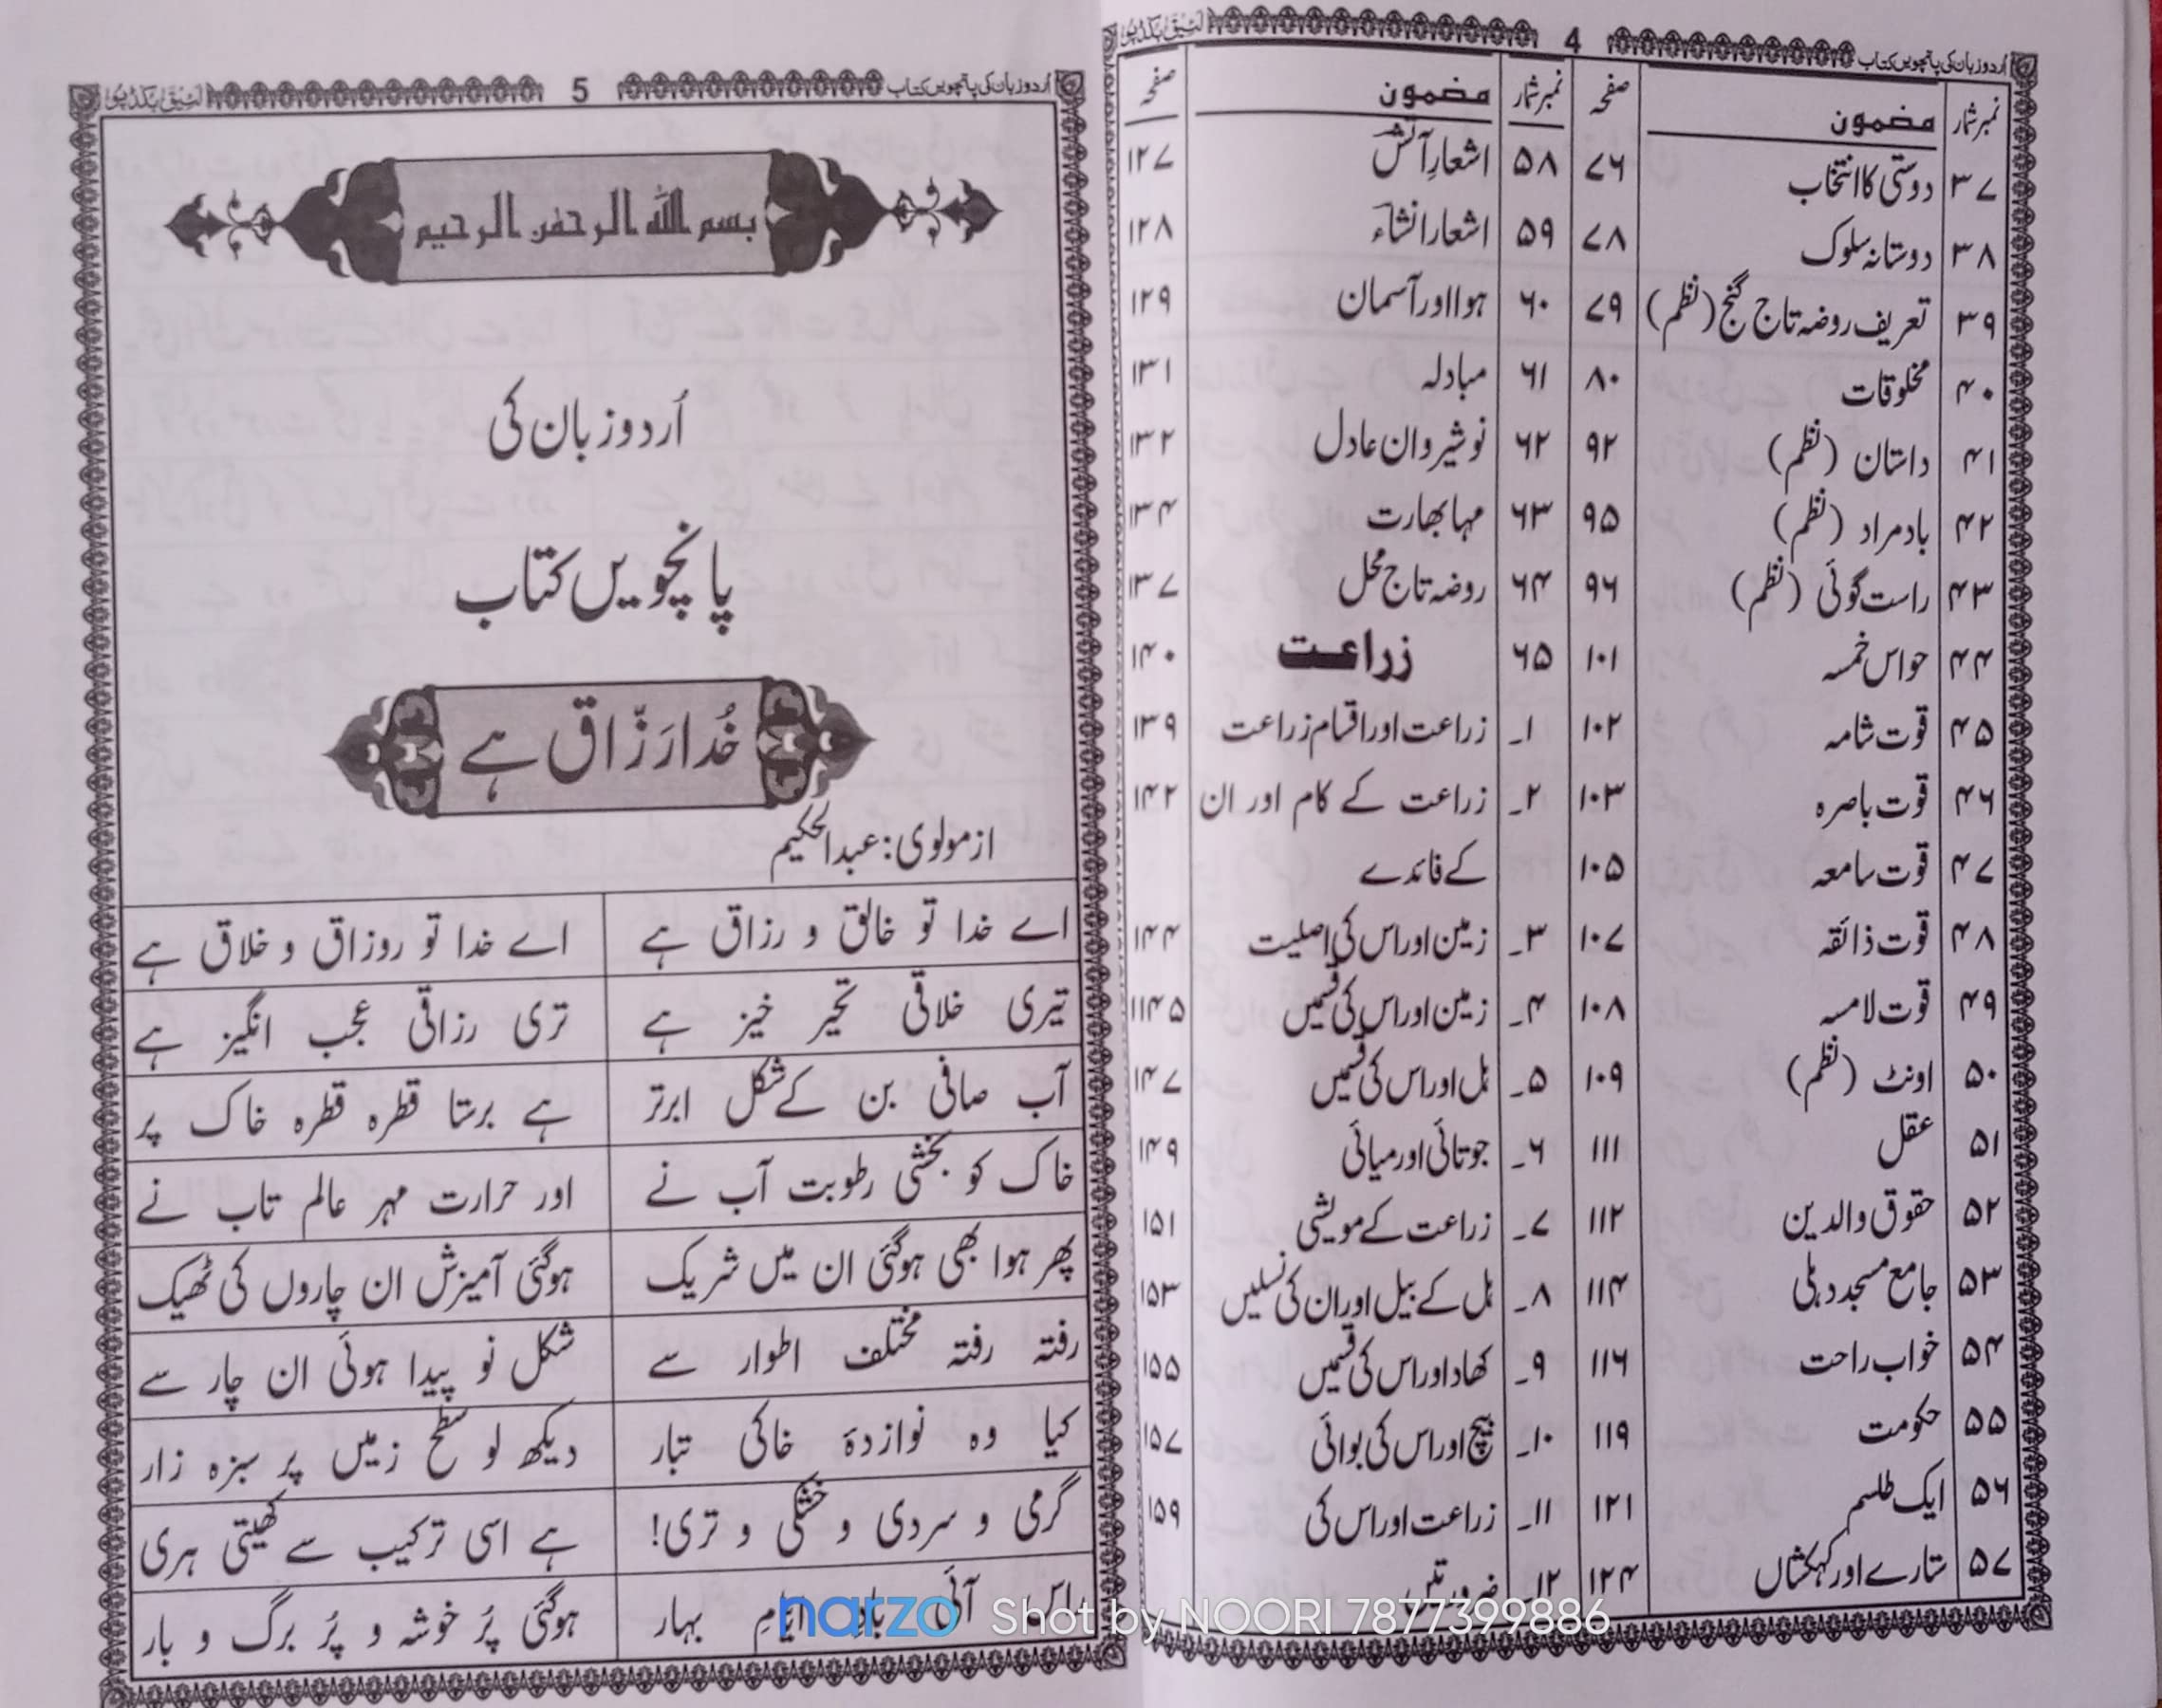 اُردو زبان کی پانچویں کتاب 4
نمبر شمار مضمون صفحہ نمبر شمار مضمون صفحہ
۳۷ دوستی کا انتخاب ۷۶ ۵۸ اشعارِ آتش ۱۲۷
۳۸ دوستانہ سلوک ۷۸ ۵۹ اشعار انشاء ۱۲۸
۳۹ تعریف روضہ تاج گنج (نظم) ۷۹ ۶۰ ہوا اور آسمان ۱۲۹
۴۰ مخلوقات ۸۰ ۶۱ مبادلہ ۱۳۱
۴۱ داستان (نظم) ۹۲ ۶۲ نوشیروان عادل ۱۳۲
۴۲ بادمراد (نظم) ۹۵ ۶۳ مہابھارت ۱۳۴
۴۳ راست گوئی (نظم) ۹۶ ۶۴ روضہ تاج محل ۱۳۷
۴۴ حواس خمسہ ۱۰۱ ۶۵ زراعت ۱۴۰
۴۵ قوت شامہ ۱۰۲ ۱۔ زراعت اور اقسام زراعت ۱۳۹
۴۶ قوت باصرہ ۱۰۳ ۲۔ زراعت کے کام اور ان ۱۴۲
۴۷ قوت سامعہ ۱۰۵ کے فائدے
۴۸ قوت ذائقہ ۱۰۷ ۳۔ زمین اور اس کی اصلیت ۱۴۴
۴۹ قوت لامسہ ۱۰۸ ۴۔ زمین اور اس کی قسمیں ۱۱۴۵
۵۰ اونٹ (نظم) ۱۰۹ ۵۔ ہل اور اس کی قسمیں ۱۴۷
۵۱ عقل ۱۱۱ ۶۔ جوتائی اور میائی ۱۴۹
۵۲ حقوق والدین ۱۱۲ ۷۔ زراعت کے مویشی ۱۵۱
۵۳ جامع مسجد دہلی ۱۱۴ ۸۔ ہل کے بیل اور ان کی نسلیں ۱۵۳
۵۴ خواب راحت ۱۱۶ ۹۔ کھاد اور اس کی قسمیں ۱۵۵
۵۵ حکومت ۱۱۹ ۱۰۔ بیج اور اس کی بوائی ۱۵۷
۵۶ ایک طلسم ۱۲۱ ۱۱۔ زراعت اور اس کی ۱۵۹
۵۷ ستارے اور کہکشاں ۱۲۴ ۱۲۔ ضرورتیں
اُردو زبان کی پانچویں کتاب 5
بسم اللہ الرحمٰن الرحیم
اُردو زبان کی
پانچویں کتاب
خُدا رَزّاق ہے
از مولوی: عبدالحکیم
اے خدا تو خالق و رزاق ہے اے خدا تو روزاق و خلاق ہے
تیری خلاقی تحیر خیز ہے تری رزاقی عجب انگیز ہے
آب صافی بن کے شکل ابرتر ہے برستا قطرہ قطرہ خاک پر
خاک کو بخشی رطوبت آب نے اور حرارت مہر عالم تاب نے
پھر ہوا بھی ہوگئی ان میں شریک ہوگئی آمیزش ان چاروں کی ٹھیک
رفتہ رفتہ مختلف اطوار سے شکل نو پیدا ہوئی ان چار سے
کیا وہ نوازدۂ خاکی تبار دیکھ لو سطح زمیں پر سبزہ زار
گرمی و سردی و خشکی و تری! ہے اسی ترکیب سے کھیتی ہری
اس آئی بادِ ایّامِ بہار ہوگئی پُر خوشہ و پُر برگ و بار
narzo Shot by NOORI 7877399886